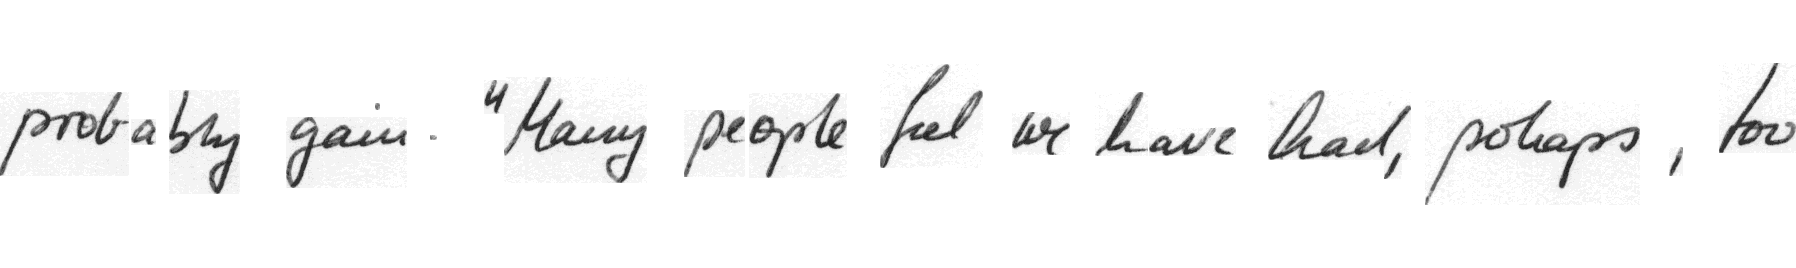 probably gain. "Many people feel we have had, perhaps, too